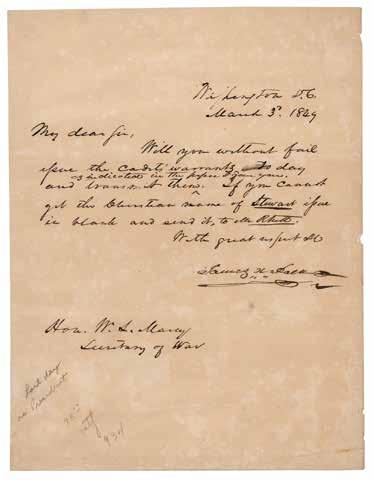 Washington D.C.
March 3d. 1849
My dear Sir,
Will you without fail
issue the Cadets' warrants, to day
as indicated in the paper I gave you,
and transmit them. If you cannot
get the Christian name of Stewart issue
in blank and send it, to Mr
With great respect &c
James K. Polk
Hon. W. L. Marcy
Secretary of War
Last day
as President